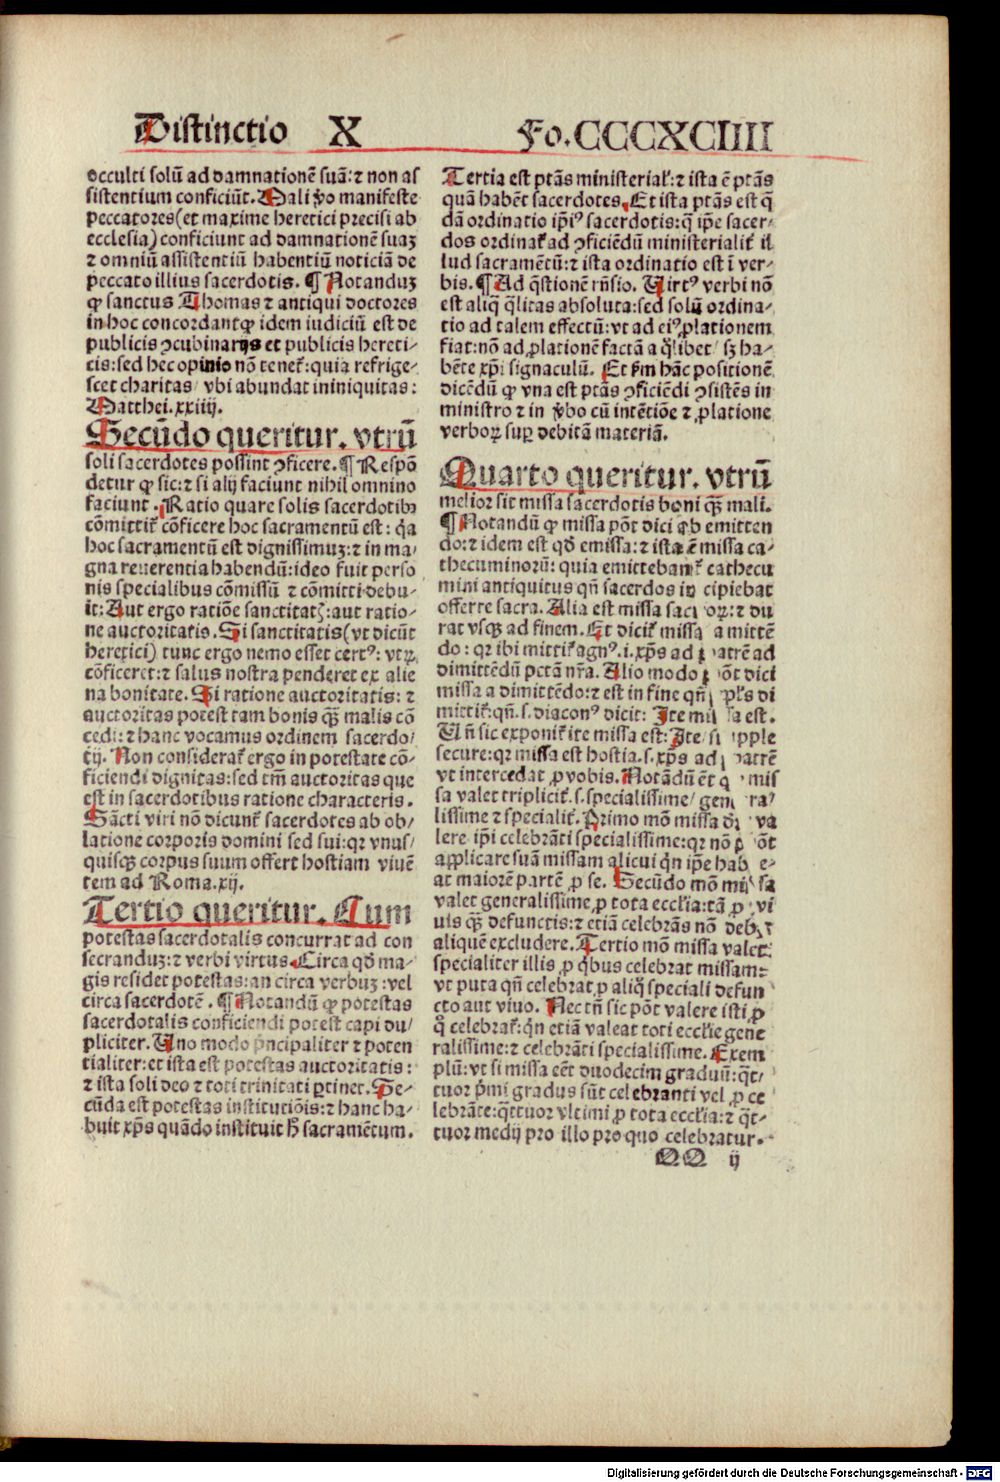 Distinctio X Fo.CCCXCIIII
occulti solū ad damnationē suā: ⁊ non as
sistentium conficiūt. Mali ꝟo manifeste
peccatores (et maxime heretici precisi ab
ecclesia) conficiunt ad damnationē suaꝫ
⁊ omniū assistentiū habentiū noticiā de
peccato illius sacerdotis. ¶ Notanduꝫ
ꝙ sanctus Thomas ⁊ antiqui doctores
in hoc concordant ꝙ idem iudiciū est de
publicis ꝯcubinarijs et publicis hereti-
cis: sed hec opinio nō tenet᷑: quia refrige-
scet charitas / vbi abundat ininiquitas:
Matthei.xxiiij.
Secūdo queritur. vtrū
soli sacerdotes possint ꝯficere. ¶ Respō
detur ꝙ sic: ⁊ si alij faciunt nihil omnino
faciunt. Ratio quare solis sacerdotibꝰ
cōmittit᷑ cōficere hoc sacramentū est: q̄a
hoc sacramentū est dignissimuꝫ: ⁊ in ma/
gna reuerentia habendū: ideo fuit perso
nis specialibus cōmissū ⁊ cōmitti debu-
it: Aut ergo ratiōe sanctitatꝭ: aut ratio-
ne auctoritatis. Si sanctitatis (vt dicūt
heretici) tunc ergo nemo esset certꝰ: vtꝝ
cōficeret: ⁊ salus nostra penderet ex alie
na bonitate. Si ratione auctoritatis: ⁊
auctoritas potest tam bonis qꝫ̄ malis cō
cedi: ⁊ hanc vocamus ordinem sacerdo/
tij. Non considerat᷑ ergo in potestate cō-
ficiendi dignitas: sed tm̄ auctoritas que
est in sacerdotibus ratione characteris.
Sācti viri nō dicunt᷑ sacerdotes ab ob/
latione corporis domini sed sui: qꝛ vnus/
quisqꝫ corpus suum offert hostiam viuē
tem ad Roma.xij.
Tertio queritur. Cum
potestas sacerdotalis concurrat ad con
secranduꝫ: ⁊ verbi virtus. Circa qd̄ ma-
gis residet potestas: an circa verbuꝫ: vel
circa sacerdotē. ¶ Notandū ꝙ potestas
sacerdotalis conficiendi potest capi du/
pliciter. Uno modo pͥncipaliter ⁊ poten
tialiter: et ista est potestas auctoritatis:
⁊ ista soli deo ⁊ toti trinitati ꝑtinet. Se-
cūda est potestas institutiōis: ⁊ hanc ha-
buit xp̄s quādo instituit h̄ sacramētum.
Tertia est ptās ministerial᷑: ⁊ ista ē ptās
quā habēt sacerdotes. Et ista ptās est q̄
dā ordinatio ip̄iꝰ sacerdotis: q̄ ip̄e sacer-
dos ordinat᷑ ad ꝯficiēdū ministerialit᷑ il
lud sacramētū: ⁊ ista ordinatio est ī ver-
bis. ¶ Ad q̄stionē rn̄sio. Uirtꝰ verbi nō
est aliq̄ q̄litas absoluta: sed solū ordina-
tio ad talem effectū: vt ad eiꝰ ꝓlationem
fiat: nō ad ꝓlationē factā a q̊libet / sꝫ ha-
bēte xp̄i signaculū. Et ẜm hāc positionē
dicēdū ꝙ vna est ptās ꝯficiēdi ꝯsistēs in
ministro ⁊ in ꝟbo cū intētiōe ⁊ ꝓlatione
verboꝝ suꝑ debitā materiā.
Quarto queritur. vtrū
melior sit missa sacerdotis boni qꝫ̄ mali.
¶ Notandū ꝙ missa pōt dici ab emitten
do: ⁊ idem est qd̄ emissa: ⁊ ista ē missa ca-
thecuminorū: quia emittebant᷑ cathecu
mini antiquitus qn̄ sacerdos incipiebat
offerre sacra. Alia est missa sacroꝝ: ⁊ du
rat vsqꝫ ad finem. Et dicit᷑ missa a mittē
do: qꝛ ibi mittit᷑ agnꝰ.i.xp̄s ad patrē ad
dimittēdū pctā nr̄a. Alio modo pōt dici
missa a dimittēdo: ⁊ est in fine qn̄ ppl̄s di
mittit᷑: qn̄.s.diaconꝰ dicit: Ite missa est.
Un̄ sic exponit᷑ ite missa est: Ite / si pple
secure: qꝛ missa est hostia.s.xp̄s ad patrē
vt intercedat ꝓ vobis. Notādū ēt ꝙ mis
sa valet triplicit᷑.s.specialissime / genera
lissime ⁊ specialit᷑. Primo mō missa dꝛ va
lere ip̄i celebrāti specialissime: qꝛ nō pōt
applicare suā missam alicui qͥn ip̄e habe-
at maiorē partē ꝓ se. Secūdo mō missa
valet generalissime ꝓ tota eccl̄ia: tā ꝓ vi
uis qꝫ̄ defunctis: ⁊ etiā celebrās nō debꝫ
aliquē excludere. Tertio mō missa valet
specialiter illis ꝓ qͥbus celebrat missam:
vt puta qn̄ celebrat ꝓ aliq̊ speciali defun
cto aut viuo. Nec tn̄ sic pōt valere isti ꝓ
q̊ celebrat᷑: qͥn etiā valeat toti eccl̄ie gene
ralissime: ⁊ celebrāti specialissime. Exem
plū: vt si missa eēt duodecim graduū: q̄t/
tuor pͥmi gradus sūt celebranti vel ꝓ ce
lebrāte: q̄ttuor vltimi ꝓ tota eccl̄ia: ⁊ q̄t-
tuor medij pro illo pro quo celebratur.
QQ ij
Digitalisierung gefördert durch die Deutsche Forschungsgemeinschaft - DFG